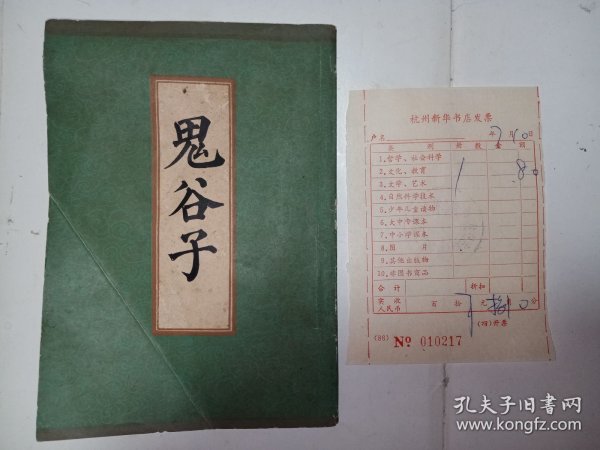 鬼谷子
杭州新华书店发票
户名 年 7月10日
类别 册数 金额
1.哲学、社会科学
2.文化、教育 1 80
3.文学、艺术
4.自然科学技术
5.少年儿童读物
6.大中专课本
7.中小学课本
8.图片
9.其他出版物
10.非图书商品
合计 折扣
实收人民币 百 拾 元 捌 角 0分
(四)开票
(86) № 010217
孔夫子旧书网
www.kongfz.com